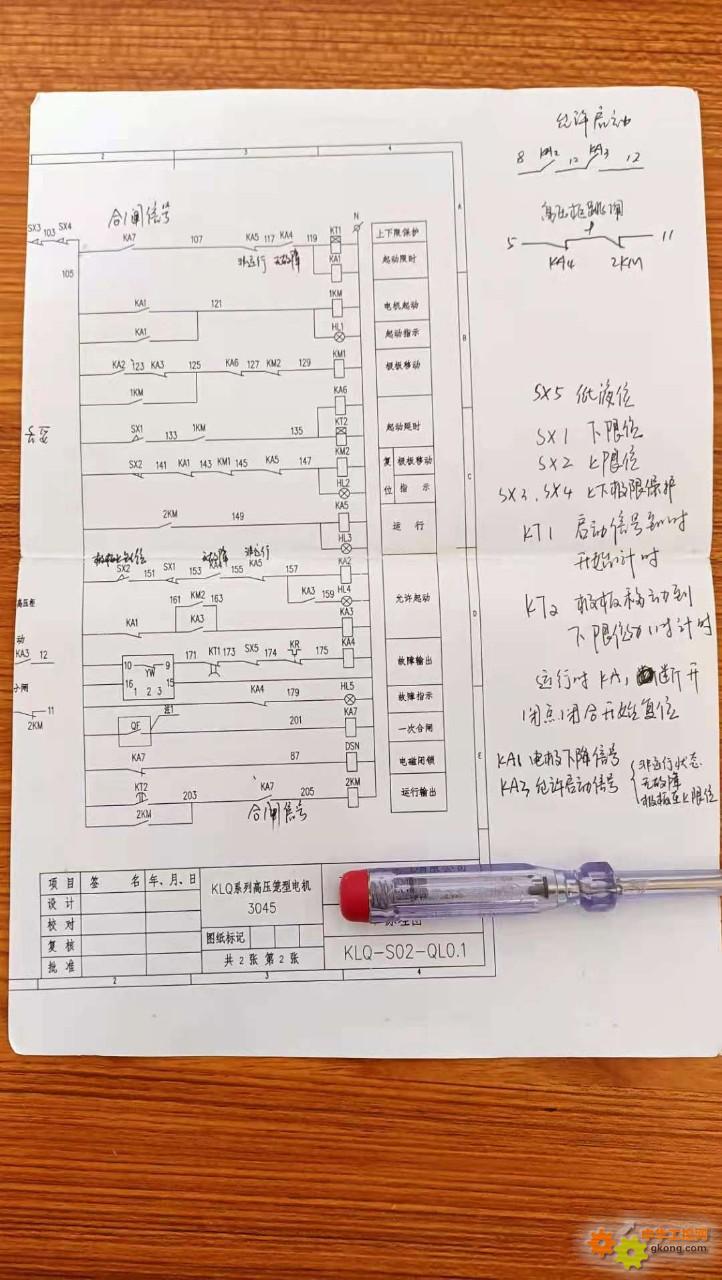 允许启动
8 KA2 12 KA3 12
高压柜跳闸
5 KA4 2KM 11
2 3 4
A
B
C
D
E
合闸信号
SX3 103 SX4
105
KA7 107 KA5 117 KA4 119 KT1
N
非运行 无故障
KA1
上下限保护
起动限时
KA1 121 1KM
电机起动
KA1 HL1
起动指示
KA2 123 KA3 125 KA6 127 KM2 129 KM1
极板移动
1KM KA6
SX1 133 1KM 135 KT2
起动延时
SX2 141 KA1 143 KM1 145 KA5 147 KM2
复 极板移动
HL2
位 指示
2KM 149 KA5
运行
HL3
非运行
SX2 151 SX1 153 KA4 155 KA5 157 KA2
161 KM2 163 KA3 159 HL4
允许起动
KA1 KA3 KA3
高压柜
动
KA3 12
10 9 171 KT1 173 SX5 174 KR 175 KA4
YW
16 15
1 2 3
故障输出
KA4 179 HL5
故障指示
11
2KM
QF 201 KA7
一次合闸
KA7 87 DSN
电磁闭锁
KT2 203 KA7 205 2KM
运行输出
2KM
合闸信号
SX5 低液位
SX1 下限位
SX2 上限位
SX3、SX4 上下极限保护
KT1 启动信号到时
开始计时
KT2 极板移动到
下限位
运行时KA1 断开
闭点闭合开始复位
KA1 电极下降信号
KA3 允许启动信号
非运行状态
无故障
极板至上限位
项目 签名 年、月、日
设计
校对
复核
批准
KLQ系列高压笼型电机
3045
图纸标记
共2张 第2张
KLQ-S02-QL0.1
2 3 4
gkong.com